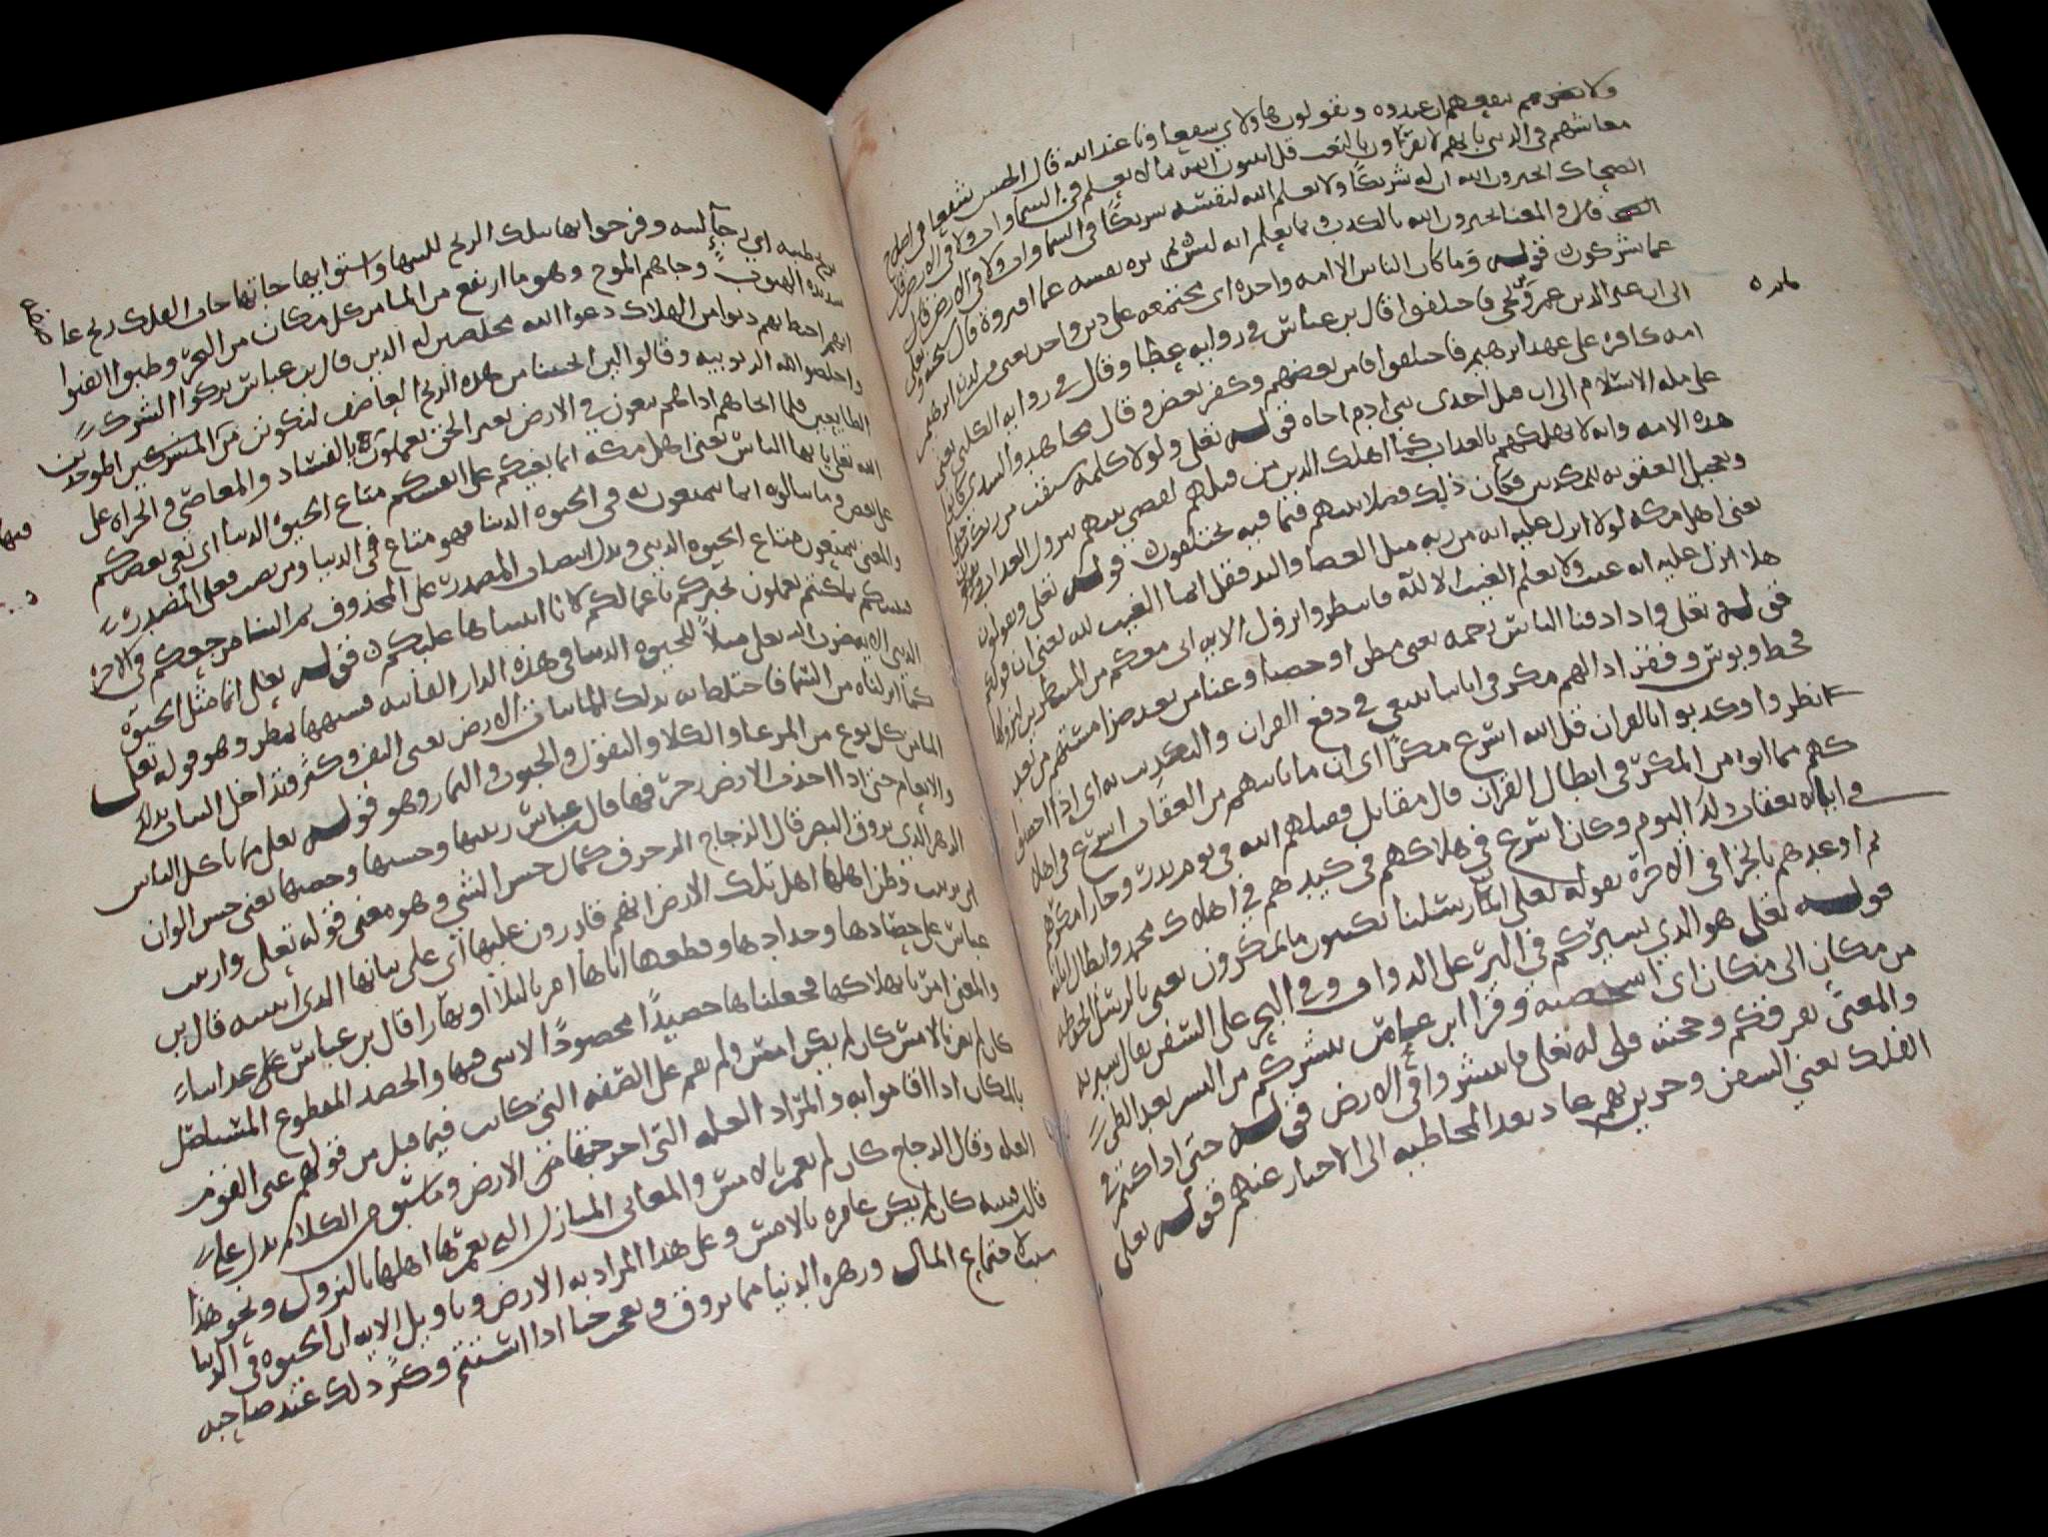 ولا يضرهم ان عبدوه ويقولون هاولاي شفعاونا عند الله قال الحسن شفعا في اصلاح
معاشهم في الدنيا لانهم لا يقرون بالبعث قل اتنبون الله بما لا يعلم في السماوات ولا في الارض قال
الضحاك اتخبرون الله ان له شريكا ولا يعلم الله لنفسه شريكا في السماوات ولا في الارض
والمعنى اتخبرون الله بالكذب وبما يعلم انه ليس ثم نزه نفسه عما افتروه فقال سبحانه وتعلى
عما يشركون قوله وما كان الناس الا امه واحده اي مجتمعه على دين واحد يعني من لدن ابرهيم
الى ان غير الدين عمرو بن لحي فاختلفوا قال بن عباس في روايه عطا وقال في روايه الكلبي يعني
امه كافره على عهد ابرهيم فاختلفوا فامن بعضهم وكفر بعض وقال مجاهد والسدي كانوا
على مله الاسلام الى ان قتل احدى بني ادم اخاه قوله تعلى ولولا كلمه سبقت من ربك
هذه الامه وانه لا يهلكهم بالعذاب كما اهلك الذين من قبلهم لقضي بينهم بنزول العذاب
وتعجيل العقوبه للمكذبين وكان ذلك فصلا بينهم فيما فيه يختلفون قوله تعلى ويقولون
يعني اهل مكه لولا انزل عليه ايه من ربه مثل العصا واليد فقل انما الغيب لله يعني ان قولكم
هلا انزل عليه ايه غيب ولا يعلم الغيب الا لله فانتظروا نزول الايه اني معكم من المنتظرين لنزولها
قوله تعلى واذا اذقنا الناس رحمه يعني مطرا وخصبا وغنا من بعد ضرا مستهم من بعد
قحط وبوس وفقر اذا لهم مكر في اياتنا يسعي في دفع القران والتكذيب به اي اذا اخصبوا
بطروا وكذبوا بالقران قل الله اسرع مكرا اي ان ما ياتيهم من العقاب اسرع في اهلا
كهم مما اتوه من المكر في ابطال القران قال مقاتل فقتلهم الله في يوم بدر وجازا مكرهم
في اياته بعقاب ذلك اليوم وكان اسرع في هلاكهم في كيدهم في اهلاك محمد وابطال
ثم اوعدهم بالجزا في الاخرة بقوله تعلى ان رسلنا يكتبون ما تمكرون يعني بالرسل الحفظه
قوله تعلى هو الذي يسيركم في البر على الدواب وفي البحر على السفن يقال سير به
من مكان الى مكان اي اشخصه وقرا ابن عامر ينشركم من النشر بعد الطي
والمعنى يفرقكم وحجته قوله تعلى فانتشروا في الارض قوله حتى اذا كنتم في
الفلك يعني السفن وجرين بهم عاد بعد المخاطبه الى الاخبار عنهم قوله تعلى
بريح طيبه اي رخآ لينه وفرحوا بها بتلك الريح للينها واستوايها جاتها جات الفلك ريح عا
شديده الهبوب وجاهم الموج وهو ما ارتفع من الما من كل مكان من البحر وظنوا ايقنوا
انهم احيط بهم دنوا من الهلاك دعوا الله مخلصين له الدين قال بن عباس تركوا الشرك
واخلصوا لله الربوبيه وقالوا لين انجيتنا من هذه الريح العاصف لنكونن من الشاكرين الموحدين
الطايعين فلما انجاهم اذا هم يبغون في الارض بغير الحق يعملون بالفساد والمعاصي والجراه على
الله تعلى يا ايها الناس يعني اهل مكه انما بغيكم على انفسكم متاع الحيوة الدنيا اي بغي بعضكم
على بعض وما ينالونه انما يتمتعون به في الحيوه الدنيا فهو متاع في الدنيا ومن نصب فعلى المصدر
والمعنى يتمتعون متاع الحيوه الدنيا ويدل انتصاب المصدر على المحذوف ثم الينا مرجعكم في الاخر
فننبيكم بما كنتم تعملون نخبركم باعمالكم لانا اثبتناها عليكم قوله تعلى انما مثل الحيوة
الدنيا الايه يضرب الله تعلى مثلا للحيوه الدنيا في هذه الدار الفانيه فشبهها بمطر وهو قوله تعلى
كما انزلناه من السما فاختلط به بذلك الما نبات الارض يعني التف وكثر وتداخل النبات بذلك
الما من كل نوع من المرعا والكلا والبقول والحبوب والثمار وهو قوله تعلى مما ياكل الناس
والانعام حتى اذا اخذت الارض زخرفها قال بن عباس زينتها وحسنها وخصبها يعني حسن الوان
الزهر الذي يروق البصر قال الزجاج الزخرف كمال حسن الشي وهو معنى قوله تعلى وازينت
اي تزينت وظن اهلها اهل تلك الارض انهم قادرون عليها اي على نباتها الذي انبتته قال بن
عباس على حصادها وجدادها وقطعها اتاها امرنا ليلا او نهارا قال بن عباس
والمعنى امرنا بهلاكها فجعلناها حصيدا محصودا لا شي فيها والحصد المقطوع المستاصل
كان لم تغن بالامس كان لم يكن امس ولم يقم على الصفه التي كانت فيما قبل من قولهم غني القوم
بالمكان اذا اقاموا به والمراد الغله التي اخرجتها من الارض وما سبق من الكلام يدل على
الغله وقال الزجاج كان لم تعمر بالامس والمغاني المنازل التي يعمرها اهلها بالنزول ونحو هذا
قال قتيبه كان لم يكن عامره بالامس وعلى هذا المراد به الارض وتاويل الايه ان الحيوه في الدنيا
سببا لاجتماع المال وزهره الدنيا مما يروق ويعجب حتى اذا استتم وكثر ذلك عند صاحبه